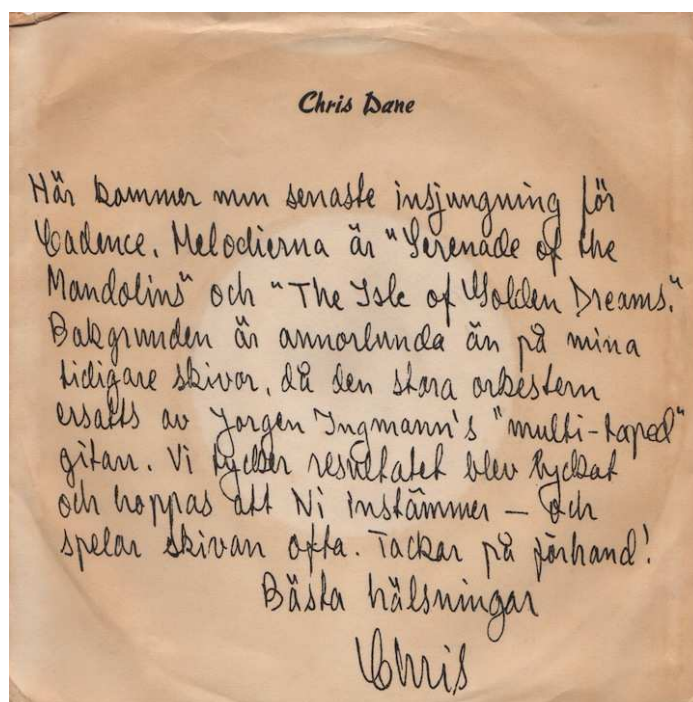 Chris Dane
Här kommer min senaste insjungning för
Cadence. Melodierna är "Serenade of the
Mandolins" och "The Isle of Golden Dreams."
Bakgrunden är annorlunda än på mina
tidigare skivor, då den stora orkestern
ersatts av Jorgen Ingmann's "multi-taped"
gitarr. Vi tycker resultatet blev lyckat
och hoppas att Ni instämmer – och
spelar skivan ofta. Tackar på förhand!
Bästa hälsningar
Chris